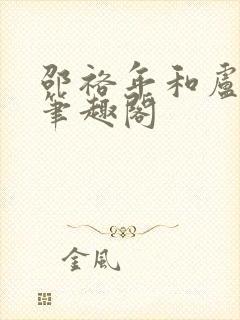 邵裕年和盧
筆趣閣
金風